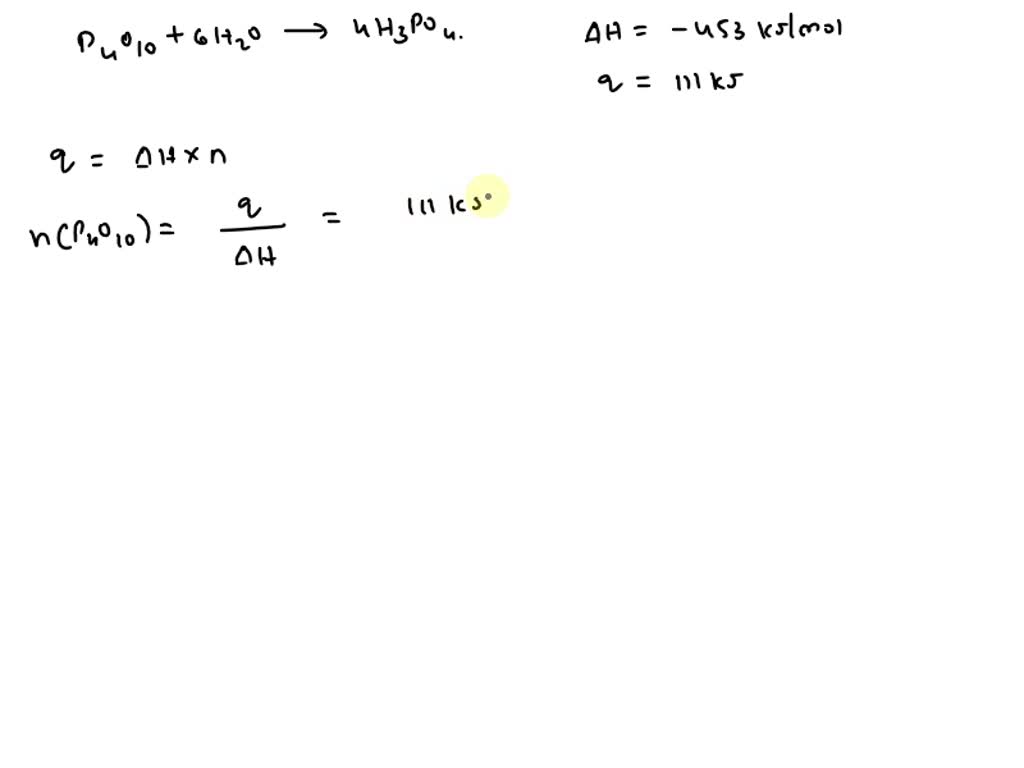 P4O10 + 6H2O → 4H3PO4.
ΔH = -453 kJ/mol
q = 111 kJ
q = ΔH × n
n(P4O10) = q/ΔH = 111 kJ